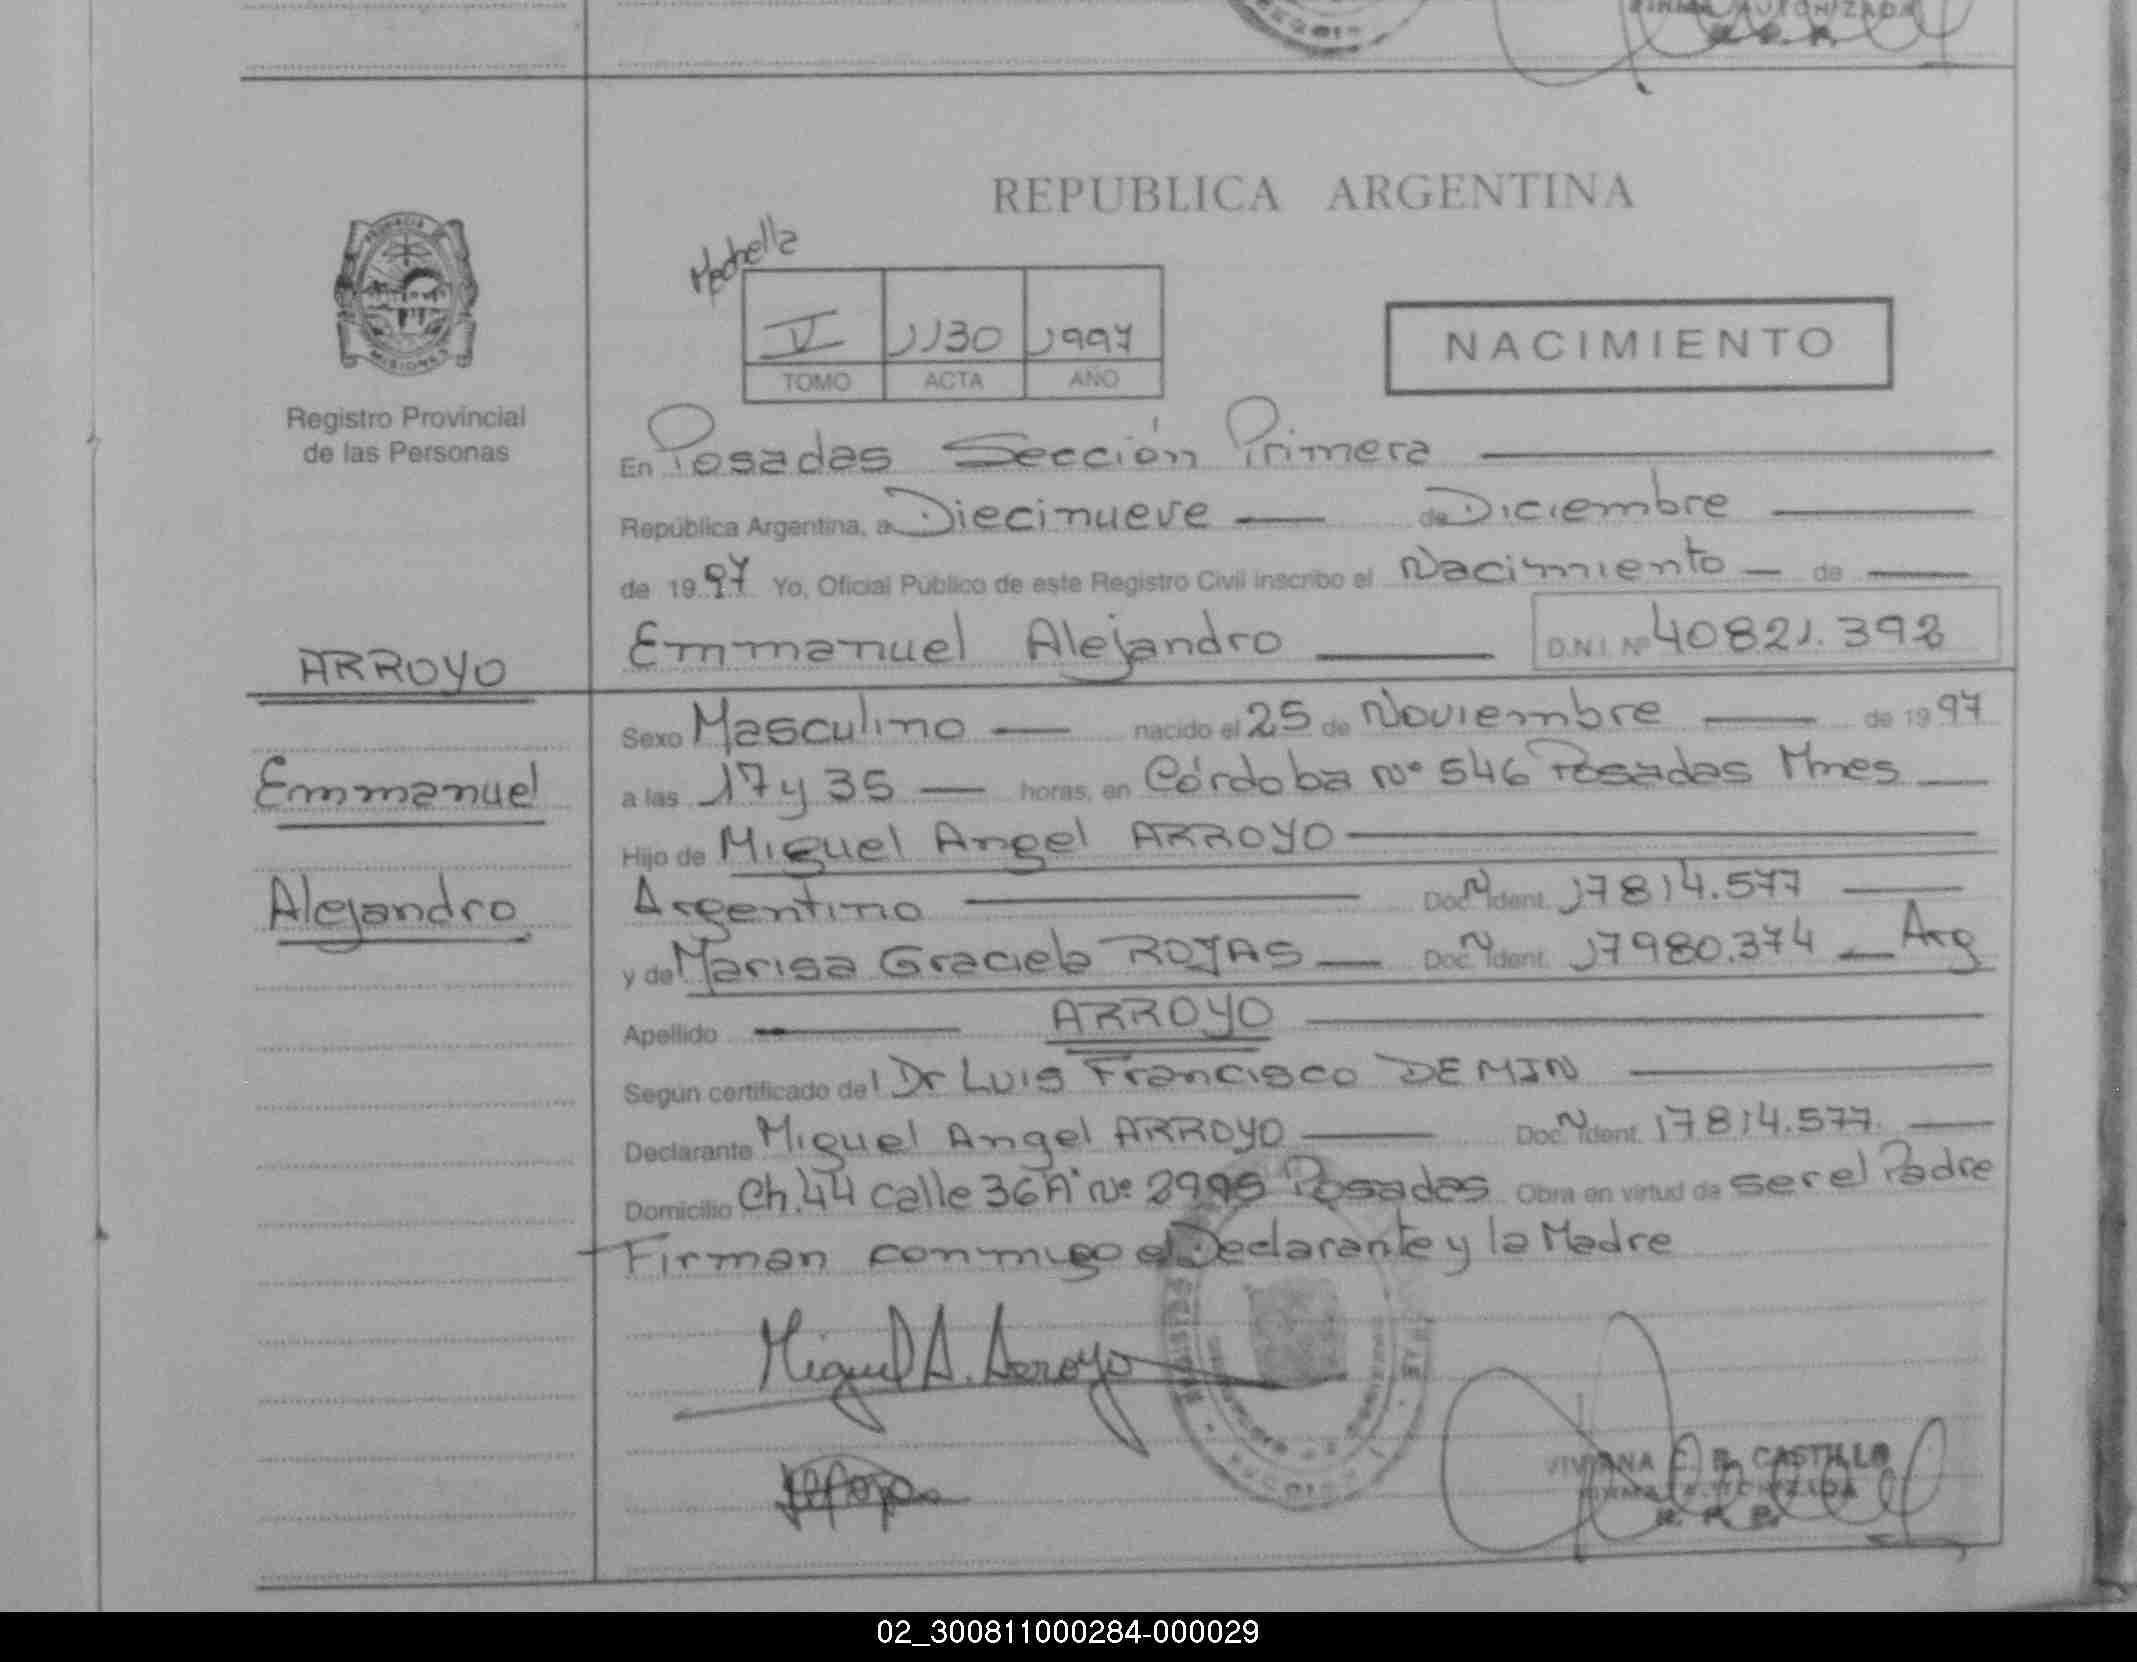 FIRMA AUTORIZADA
REPUBLICA ARGENTINA
V 1130 1997
TOMO ACTA AÑO
NACIMIENTO
PROVINCIA DE
MISIONES
Registro Provincial
de las Personas
En Posadas Sección Primera
República Argentina, a Diecinueve de Diciembre
de 1997 Yo, Oficial Público de este Registro Civil inscribo el Nacimiento de
ARROYO
Emmanuel Alejandro D.N.I. Nº 40821.392
Sexo Masculino nacido el 25 de Noviembre de 1997
Emmanuel
a las 17 y 35 horas, en Córdoba Nº 546 Posadas Mnes
Hijo de Miguel Angel ARROYO
Alejandro
Argentino Doc. Ident. 17814.577
y de Marisa Graciela ROJAS Doc. Ident. 17980.374 Arg
Apellido ARROYO
Según certificado del Dr Luis Francisco DEMIN
Declarante Miguel Angel ARROYO Doc. Ident. 17814.577
Domicilio Ch. 44 calle 36 A Nº 2995 Posadas Obra en virtud de ser el Padre
Firman conmigo el Declarante y la Madre
Miguel A. Arroyo
VIVIANA C. B. CASTILLO
FIRMA AUTORIZADA
02_300811000284-000029